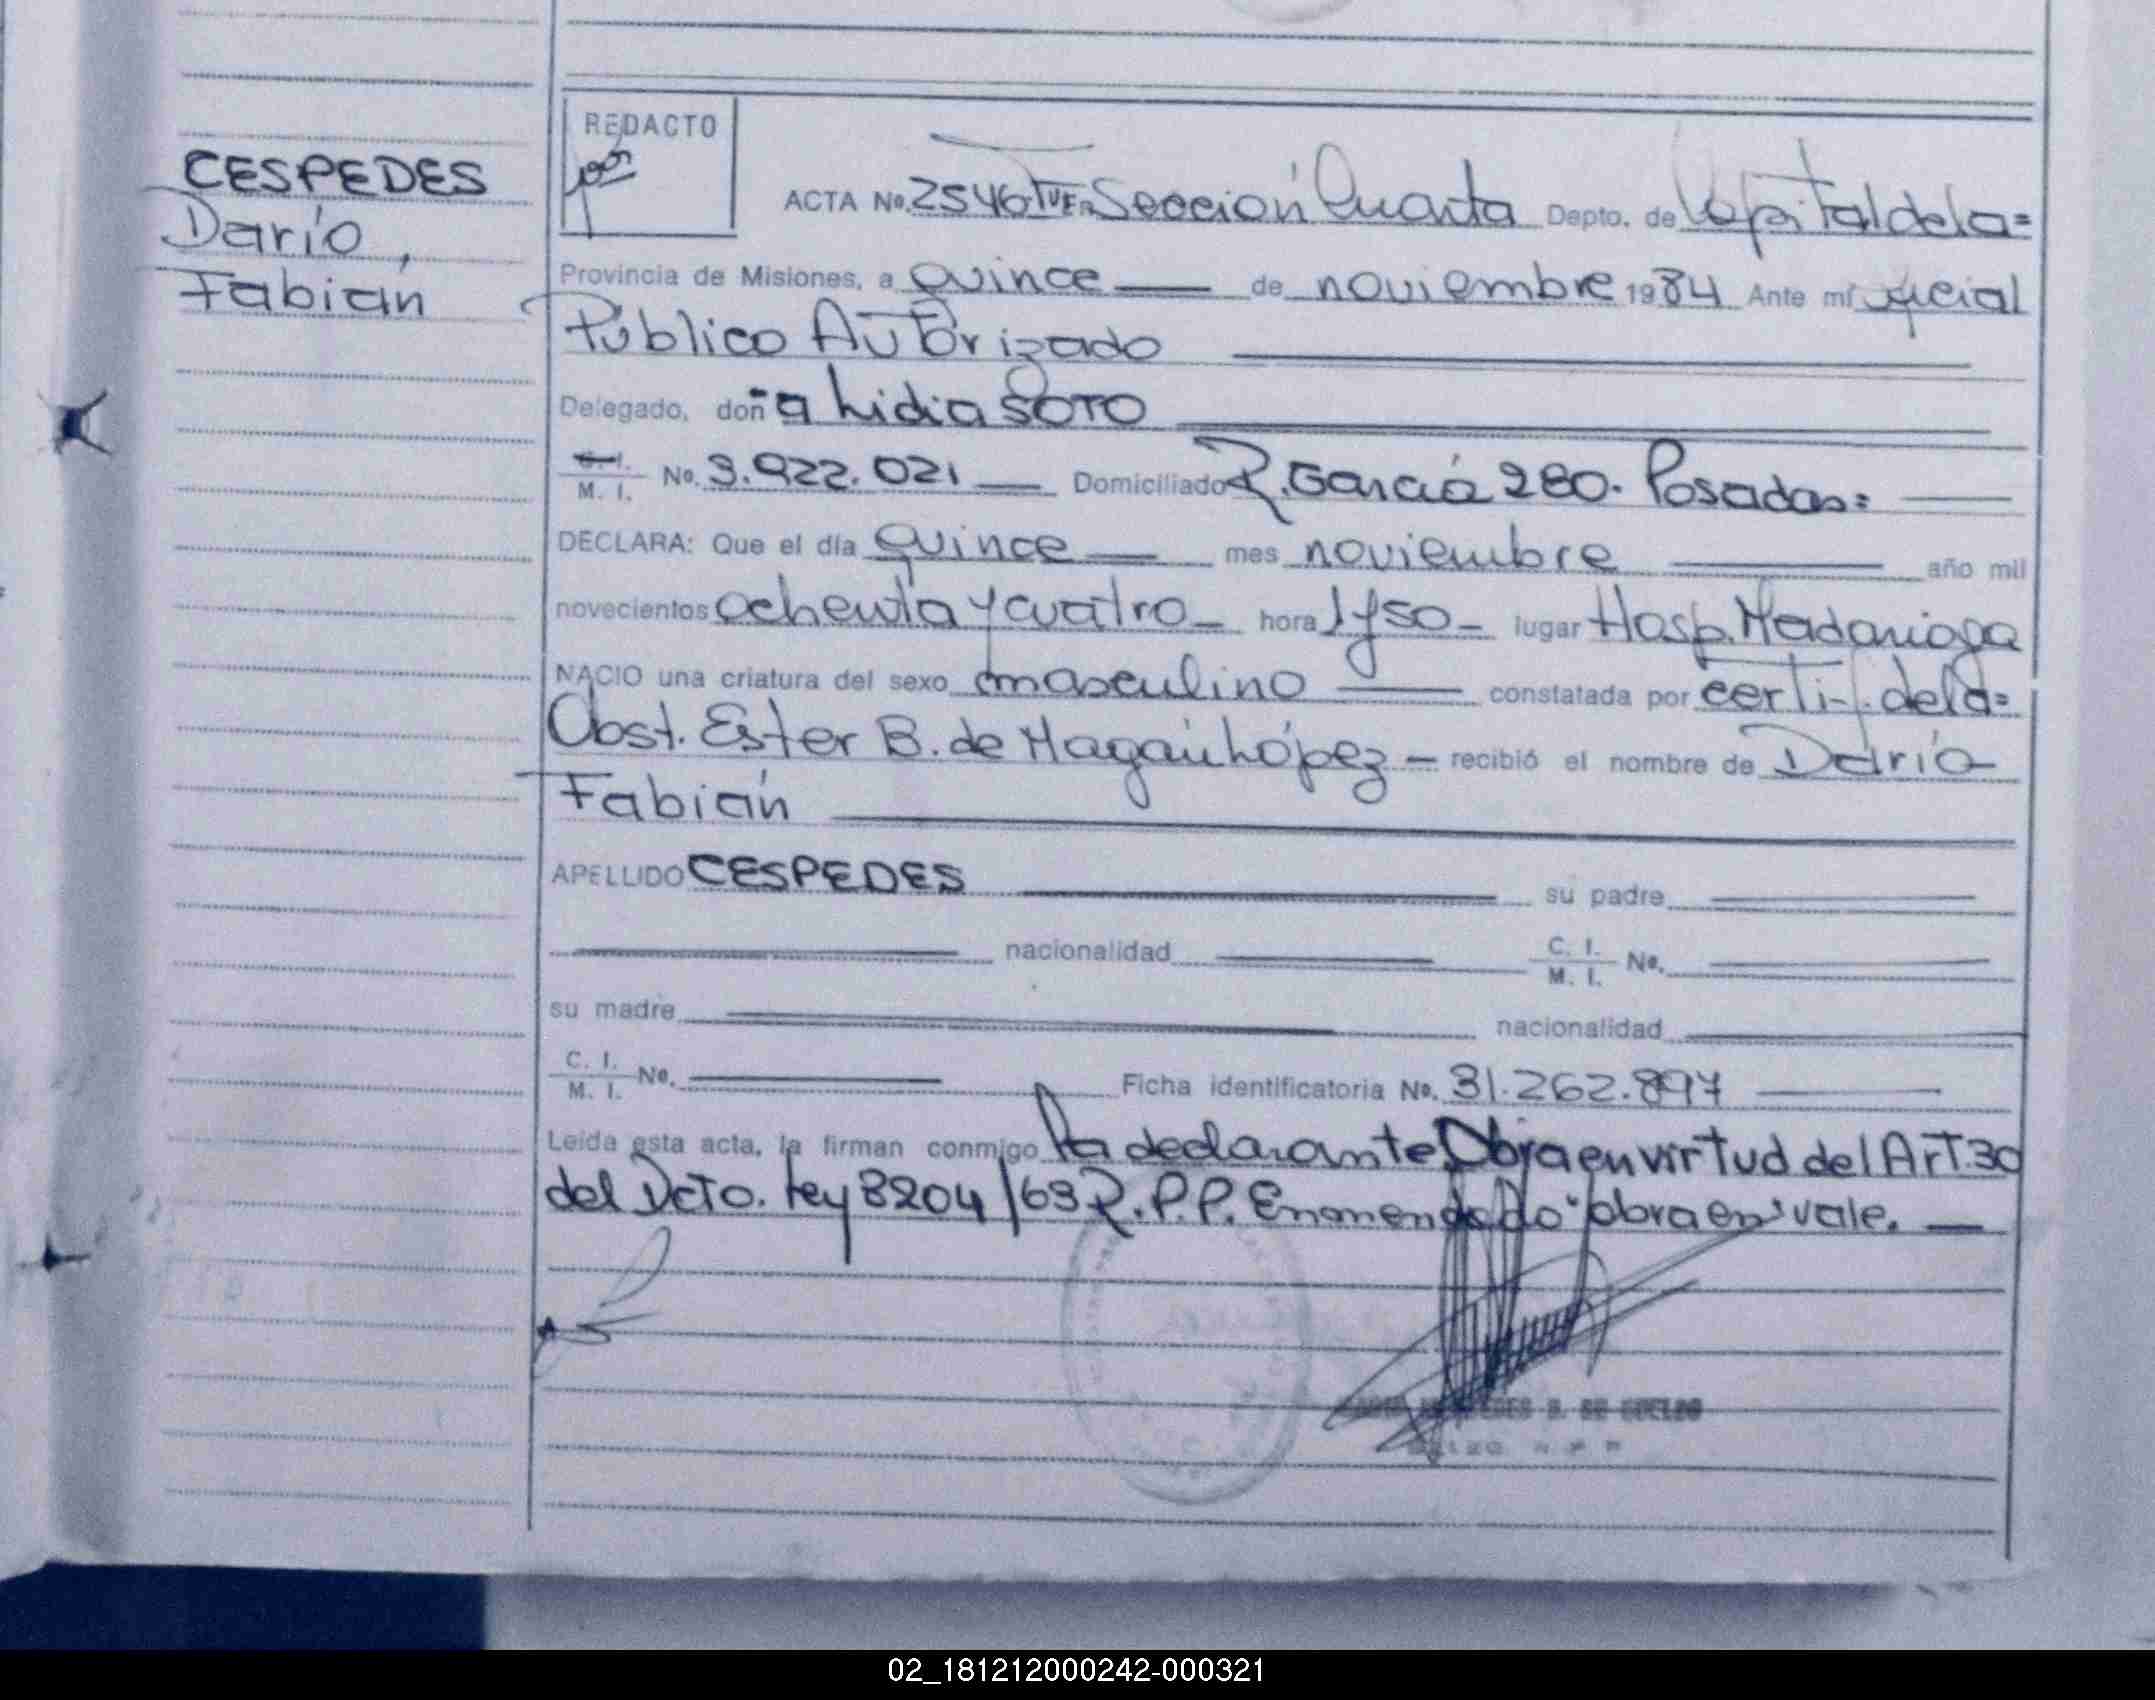 REDACTO
CESPEDES
Darío,
Fabián
ACTA No. 2546 TVER Sección Cuarta Depto. de Capital de la=
Provincia de Misiones, a quince de noviembre 1984 Ante mí oficial
Público Autorizado
Delegado, doña Lidia SOTO
C. I. M. I. No. 3.922.021 Domiciliado R. García 280. Posadas=
DECLARA: Que el día quince mes noviembre año mil
novecientos ochenta y cuatro hora 1 y 50 lugar Hosp. Madariaga
NACIO una criatura del sexo masculino constatada por certif. de la=
Obst. Ester B. de Magán López recibió el nombre de Darío
Fabián
APELLIDO CESPEDES su padre
nacionalidad C. I. M. I. No.
su madre nacionalidad
C. I. M. I. No. Ficha identificatoria No. 31.262.897
Leída esta acta, la firman conmigo la declarante. Obra en virtud del Art. 30
del Dcto. Ley 8204/63 R.P.P. Enmendado "obra en" vale.
02_181212000242-000321